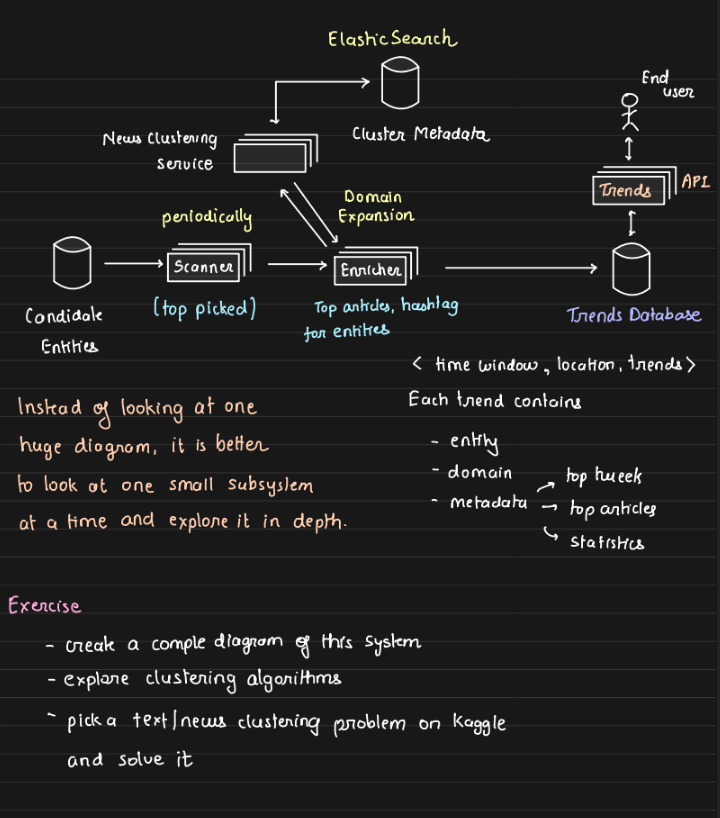 ElasticSearch
End
user
News Clustering
Service
Cluster Metadata
Trends
API
Domain
Expansion
periodically
Scanner
Enricher
Candidate
Entities
(top picked)
Top articles, hashtag
for entities
Trends Database
< time window, location, trends >
Each trend contains
- entity
- domain
- metadata
top tweek
top articles
statistics
Instead of looking at one
huge diagram, it is better
to look at one small subsystem
at a time and explore it in depth.
Exercise
- create a comple diagram of this system
- explore clustering algorithms
- pick a text/news clustering problem on Kaggle
and solve it